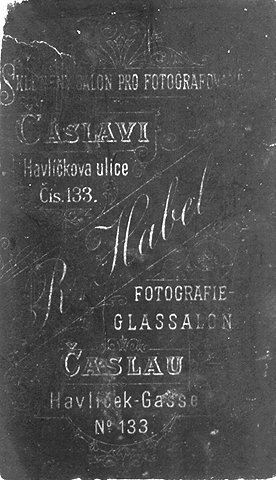 SKLENĚNÝ SALON PRO FOTOGRAFOVÁNÍ
ČÁSLAVI
Havlíčkova ulice
Čís. 133.
R. Habel
FOTOGRAFIE-
GLASSALON
ČASLAU
Havliček-Gasse
No 133.